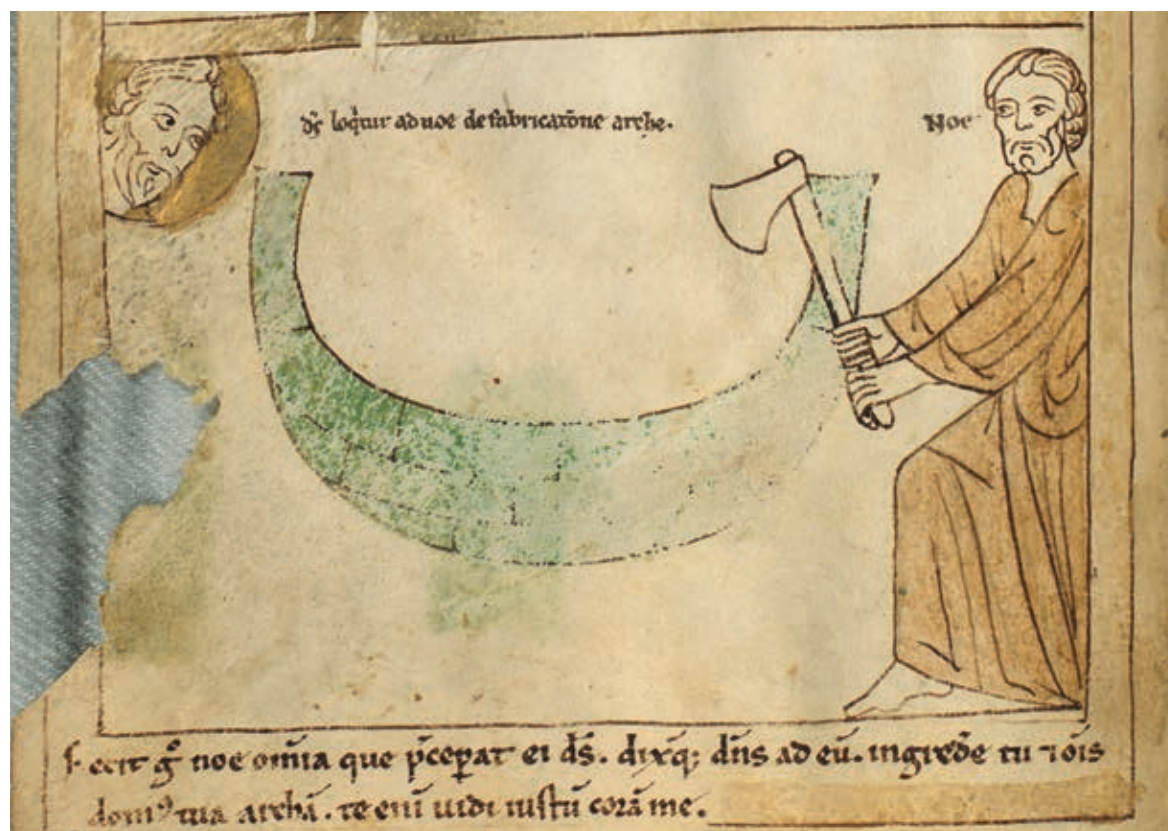 dſ loqͥtur ad noe de fabricatōne arche.
Noe
Fecit gͦ noe om̄ia que p̄ceperat ei dſ̄. dixq; dn̄s ad eū. ingrede tu ⁊ om̄is
domꝰ tua archā. te eni uidi iuſtū corā me.